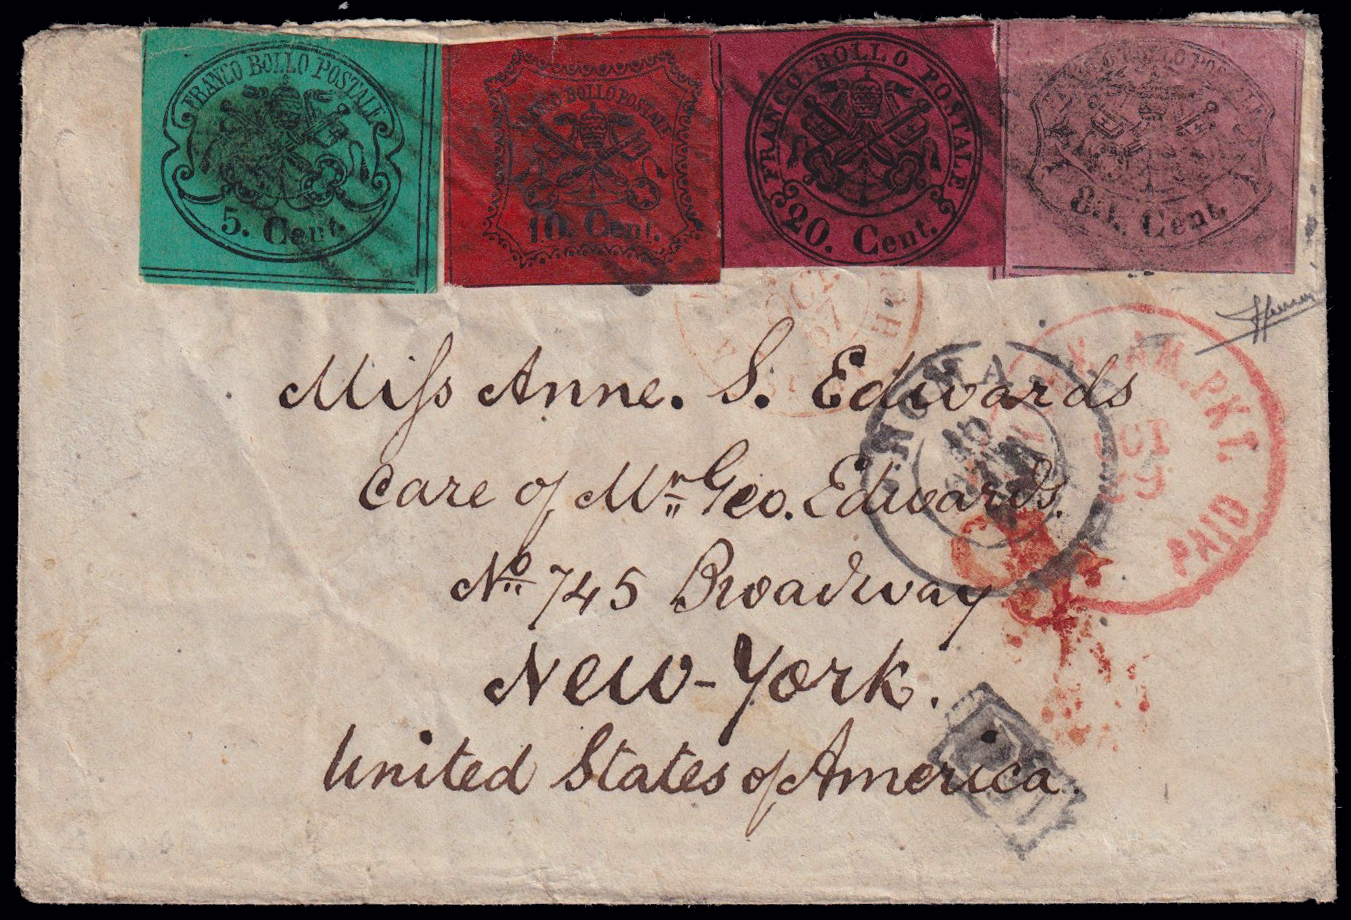 FRANCO BOLLO POSTALE
5. Cent.
FRANCO BOLLO POSTALE
10. Cent.
FRANCO BOLLO POSTALE
20. Cent.
FRANCO BOLLO POSTALE
Cent.
Miss Anne. S. Edwards
care of Mr. Geo. Edwards.
No. 745 Broadway
New-York.
United States of America.
ROMA
AM. PKT.
OCT
29
PAID